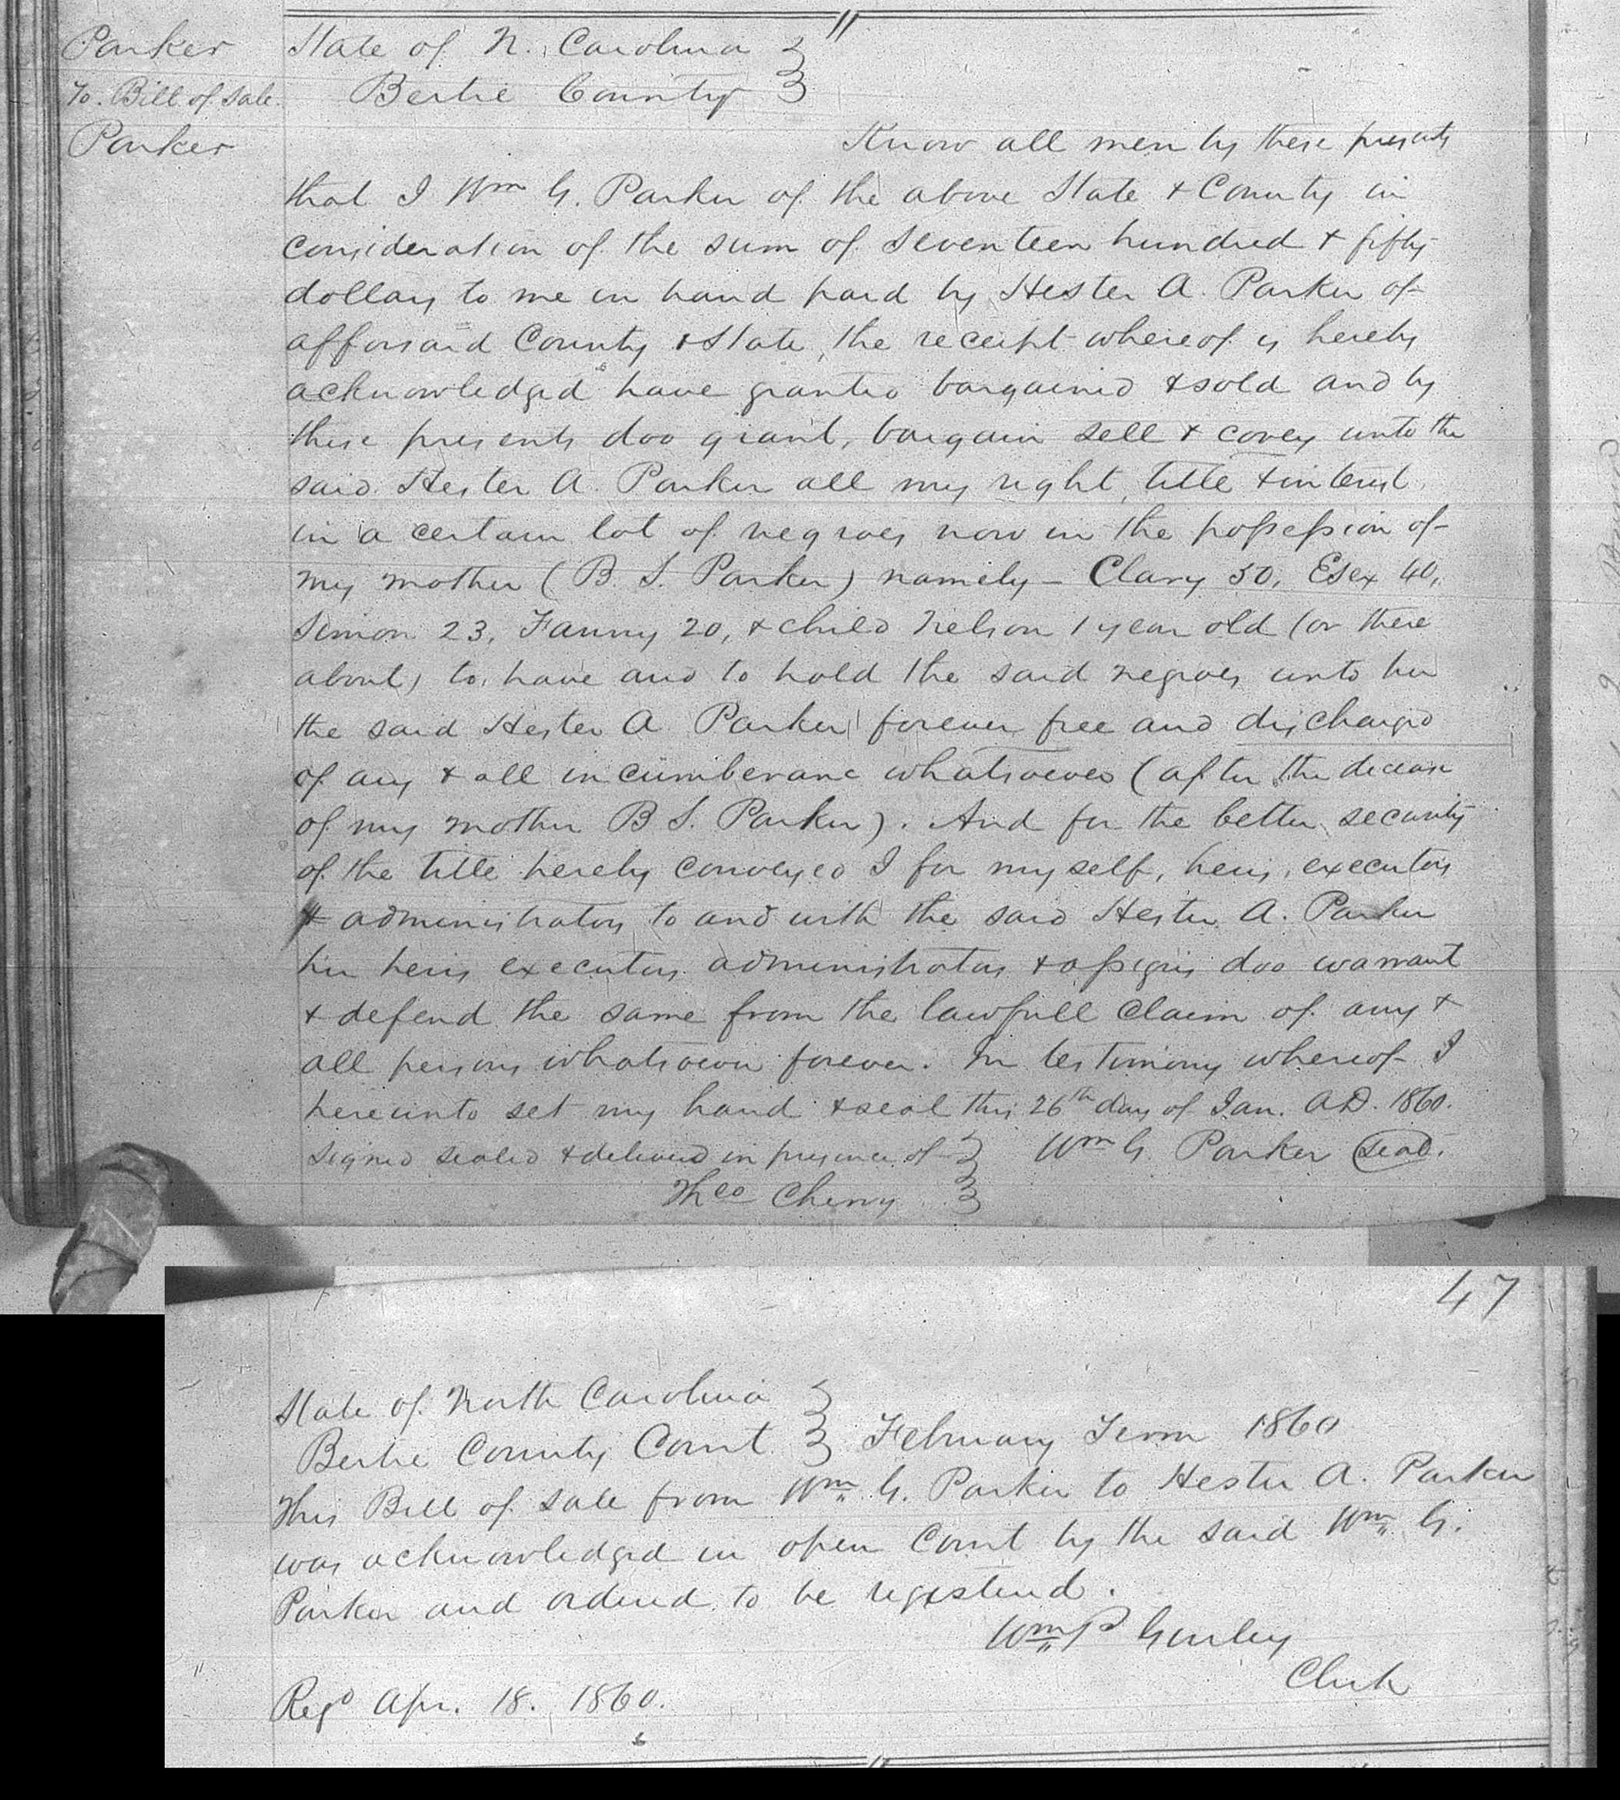 Parker
To. Bill of Sale.
Parker
State of N. Carolina
Bertie County
Know all men by these presents
that I Wm G. Parker of the above State & County in
consideration of the sum of Seventeen hundred & fifty
dollars to me in hand paid by Hester A. Parker of
afforsaid County & State, the receipt whereof is hereby
acknowledged have granted bargained & sold and by
these presents doo grant, bargain sell & covey unto the
said Hester A Parker all my right, title & interest
in a certain lot of negroes now in the possession of
my mother (B. S. Parker) namely - Clary 50, Esex 40,
Simon 23, Fanny 20, & child Nelson 1 year old (or there
about) to, have and to hold the said negroes unto her
the said Hester A Parker forever free and discharged
of any & all incumberanc whatsoever (after the decease
of my mother B S. Parker). And for the better security
of the title hereby conveyed I for my self, heirs, executors
& administrators to and with the said Hester A. Parker
her heirs executors administrators & assigns doo warrant
& defend the same from the lawfull claim of any &
all persons whatsoever forever. In testimony whereof I
hereunto set my hand & seal this 26th day of Jan. A.D. 1860.
Signed sealed & delivered in presence of Wm G. Parker (seal).
Theo Cherry
47
State of North Carolina
Bertie County Court February Term 1860
This Bill of Sale from Wm G. Parker to Hester A. Parker
was acknowledged in open Court by the said Wm G.
Parker and ordered to be registered.
Wm P Gurley
Clerk
Regd Apr. 18. 1860.